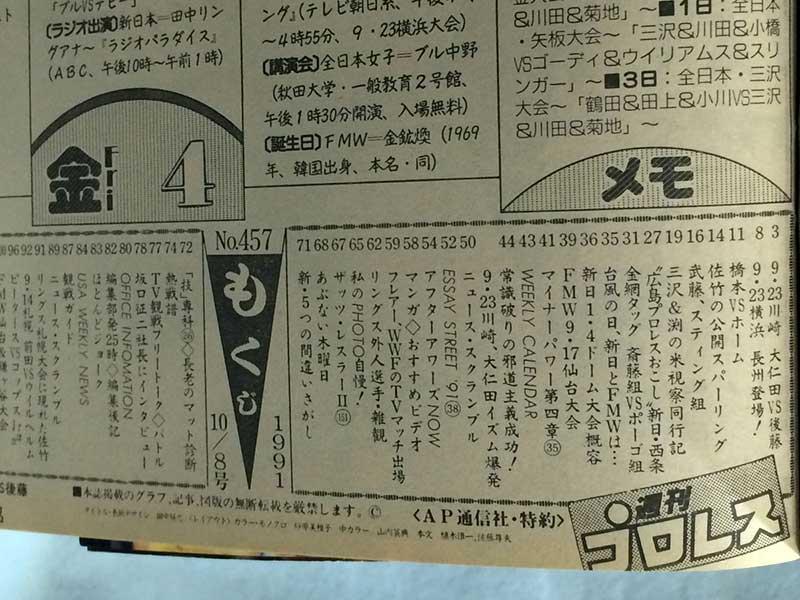 〔ラジオ出演〕新日本＝田中リン
グアナ〜『ラジオパラダイス』
(ABC、午後10時〜午前1時)
金 Fri 4
〜4時55分、9・23横浜大会)
〔講演会〕全日本女子＝ブル中野
(秋田大学・一般教育2号館、
午後1時30分開演、入場無料)
〔誕生日〕FMW＝金鉱煥(1969
年、韓国出身、本名・同)
&川田&菊地」〜■1日：全日本
・矢板大会〜「三沢&川田&小橋
VSゴーディ&ウイリアムス&スリ
ンガー」〜■3日：全日本・三沢
大会〜「鶴田&田上&小川VS三沢
&川田&菊地」〜
メモ
9・23川崎、大仁田VS後藤 3
9・23横浜、長州登場！ 8
橋本VSホーム 11
佐竹の公開スパーリング 14
武藤、スティング組 16
三沢&渕の米視察同行記 19
"広島プロレスおこし"新日・西条
金網タッグ、斎藤組VSポーゴ組
台風の日、新日とFMWは…
新日1・4ドーム大会概容
FMW9・17仙台大会
マイナーパワー第四章㉟
WEEKLY CALENDAR
常識破りの邪道主義成功！
9・23川崎、大仁田イズム爆発
ニュース・スクランブル
ESSAY STREET '91㊳
アフターアワーズNOW
マンガ◇おすすめビデオ
フレアー、WWFのTVマッチ出場
リングス外人選手・雑観
私のPHOTO自慢！
ザッツ・レスラーⅡ(151)
あぶない木曜日
新・5つの間違いさがし 71
No.457
もくじ
1991
10/8号
「技」専科㉖◇長老のマット診断 72
熱戦譜 74
TV観戦フリートーク◇バトル 77
坂口征二社長にインタビュー 78
OFFICE INFOMATION 80
編集部発25時◇編集後記 82
ほとんどジョーク 83
USA WEEKLY NEWS 84
観戦ガイド 87
ニュース・スクランブル 89
リングス札幌大会に現れた佐竹 91
9・14札幌、前田VSウイルヘルム 92
■本誌掲載のグラフ、記事、図版の無断転載を厳禁します。©
〈AP通信社・特約〉
週刊
プロレス